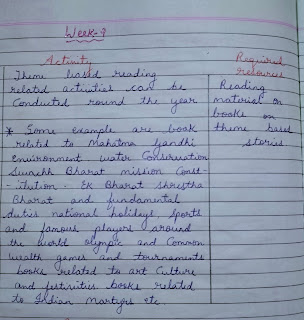 Week-7
Activity
Required resources
Theme based reading
related activities can be
Conducted round the year
Reading
material or
books on
theme based
stories
* Some example are book
related to Mahatma Gandhi
environment water Conservation
Swachh Bharat mission Const-
-itution - Ek Bharat Shrestha
Bharat and fundamental
duties national holidays, Sports
and famous players around
the world olympic and Common
wealth games and tournaments
books related to art Culture
and festivities books related
to Indian martyrs etc.